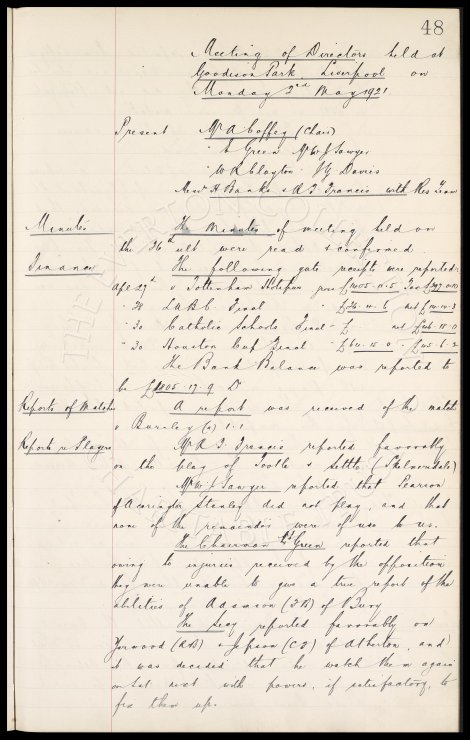 48
Meeting of Directors held at
Goodison Park, Liverpool on
Monday 2nd May 1921
Present Mr A Coffey (Chair)
" Green Mr W J Sawyer
" W R Clayton " Davies
Messrs H Banks & A T Francis with Res Team
Minutes The Minutes of meeting held on
the 26th ult were read & confirmed
Finance The following gate receipts were reported:-
Apl 27th v Tottenham Hotspur gross £
" 30 Final
" 30 Catholic Schools Final £ net
" 30 Houston Cup Final
The Bank Balance was reported to
be £ 17.9 Dr
Reports of Matches A report was received of the match
v Burnley (a) 1.1
Reports re Players Mr A T Francis reported favorably
on the play of Tootle & Settle (Skelmersdale)
Mr W J Sawyer reported that Pearson
of Accrington Stanley did not play, and that
none of the remainder were of use to us.
The Chairman & Green reported that
owing to injuries received by the opposition
they were unable to give a true report of the
abilities of Adamson (FB) of Bury
The Secy reported favorably on
(RB) & Jepson (CF) of Atherton, and
it was decided that he watch them again
on Sat next with powers, if satisfactory, to
fix them up.